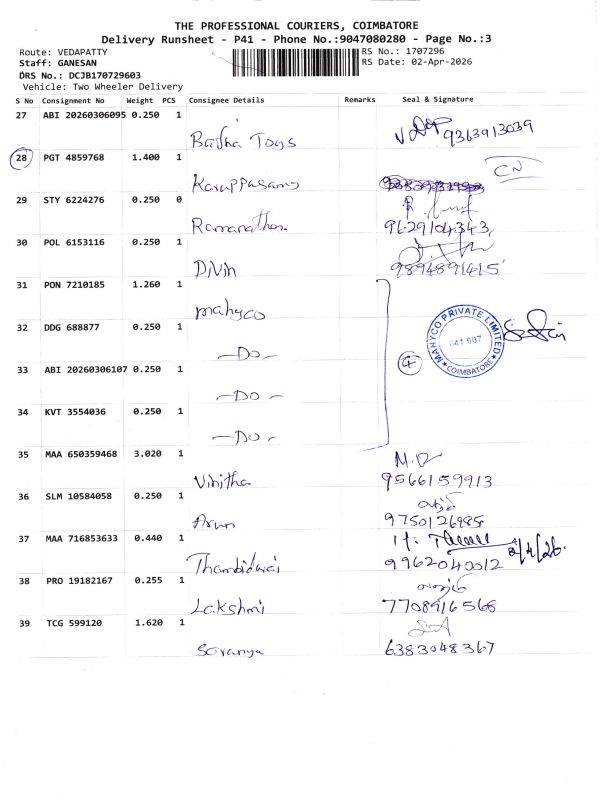 THE PROFESSIONAL COURIERS, COIMBATORE
Delivery Runsheet - P41 - Phone No.:9047080280 - Page No.:3
Route: VEDAPATTY RS No.: 1707296
Staff: GANESAN RS Date: 02-Apr-2026
DRS No.: DCJB170729603
Vehicle: Two Wheeler Delivery
S No Consignment No Weight PCS Consignee Details Remarks Seal & Signature
27 ABI 20260306095 0.250 1
Basha Toys 9363913039
28 PGT 4859768 1.400 1 CN
Karuppasamy
29 STY 6224276 0.250 0
Ramanathan 9629104343
30 POL 6153116 0.250 1
Divin 9894891415
31 PON 7210185 1.260 1
mahyco
32 DDG 688877 0.250 1
-Do-
MAHYCO PRIVATE LIMITED
641 007
COIMBATORE
4
33 ABI 20260306107 0.250 1
-Do-
34 KVT 3554036 0.250 1
-Do-
35 MAA 650359468 3.020 1
Vinitha 9566159913
36 SLM 10584058 0.250 1
Arun 9750126985
37 MAA 716853633 0.440 1 2/4/26.
Thambidurai 9962040012
38 PRO 19182167 0.255 1
Lakshmi 7708916566
39 TCG 599120 1.620 1
Saranya 6383048367